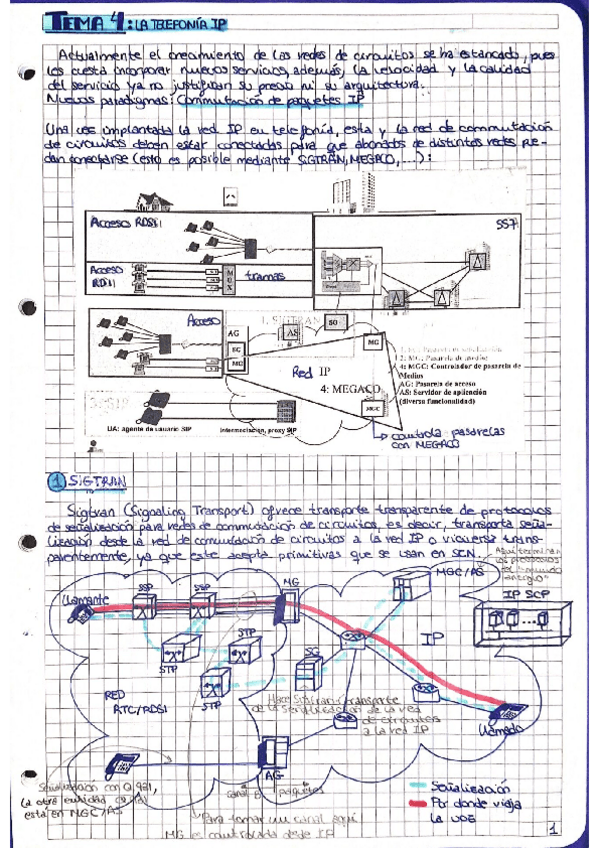 TEMA 4: LA TELEFONÍA IP
Actualmente el crecimiento de las redes de circuitos se ha estancado, pues
les cuesta incorporar nuevos servicios, además, la velocidad y la calidad
del servicio ya no justifican su precio ni su arquitectura.
Nuevos paradigmas: Conmutación de paquetes IP
Una vez implantada la red IP en telefonía, esta y la red de conmutación
de circuitos deben estar conectadas para que abonados de distintas redes pue-
dan conectarse (esto es posible mediante SIGTRAN, MEGACO, ...):
Acceso RDSI
SS7
Acceso
RDSI
MUX
tramas
Acceso
AG
1. SIGTRAN
AS
SG
MG
SG
MG
Red IP
4: MEGACO
MGC
2: MG: Pasarela de medios
4: MGC: Controlador de pasarela de
Medios
AG: Pasarela de acceso
AS: Servidor de aplicación
(diversa funcionalidad)
UA: agente de usuario SIP
Intermediación, proxy SIP
controla pasarelas
con MEGACO
1 SIGTRAN
Sigtran (Signaling Transport) ofrece transporte transparente de protocolos
de señalización para redes de conmutación de circuitos, es decir, transporta seña-
lización desde la red de conmutación de circuitos a la red IP o viceversa trans-
parentemente, ya que este acepta primitivas que se usan en SCN.
Aquí terminan
los protocolos
del "mundo
antiguo"
Llamante
SSP
SSP
MG
MGC/AS
IP SCP
STP
STP
STP
SG
IP
RED
RTC/RDSI
Hace Sigtran: transporte
de la señalización de la red
de circuitos
a la red IP
Llamado
AG
Señalización con Q.931,
la otra entidad
está en MGC/AS
canal B
paquetes
Para tomar un canal aquí
MG es controlada desde IP
Señalización
Por donde viaja
la voz
1